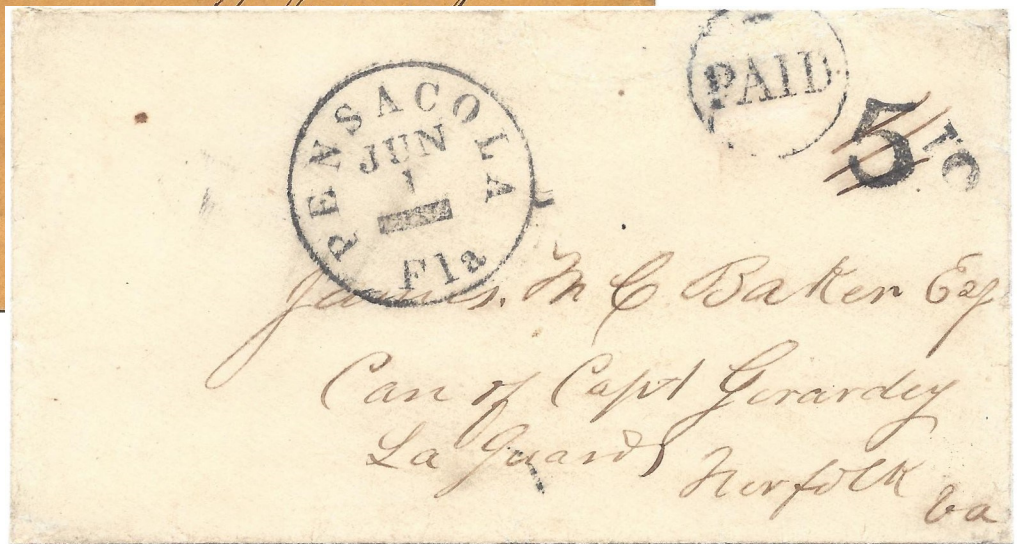 PENSACOLA
JUN
1
Fla
PAID
5
10
James. M C Baker Esq
Care of Capt Girardey
La Guards
Norfolk
Va